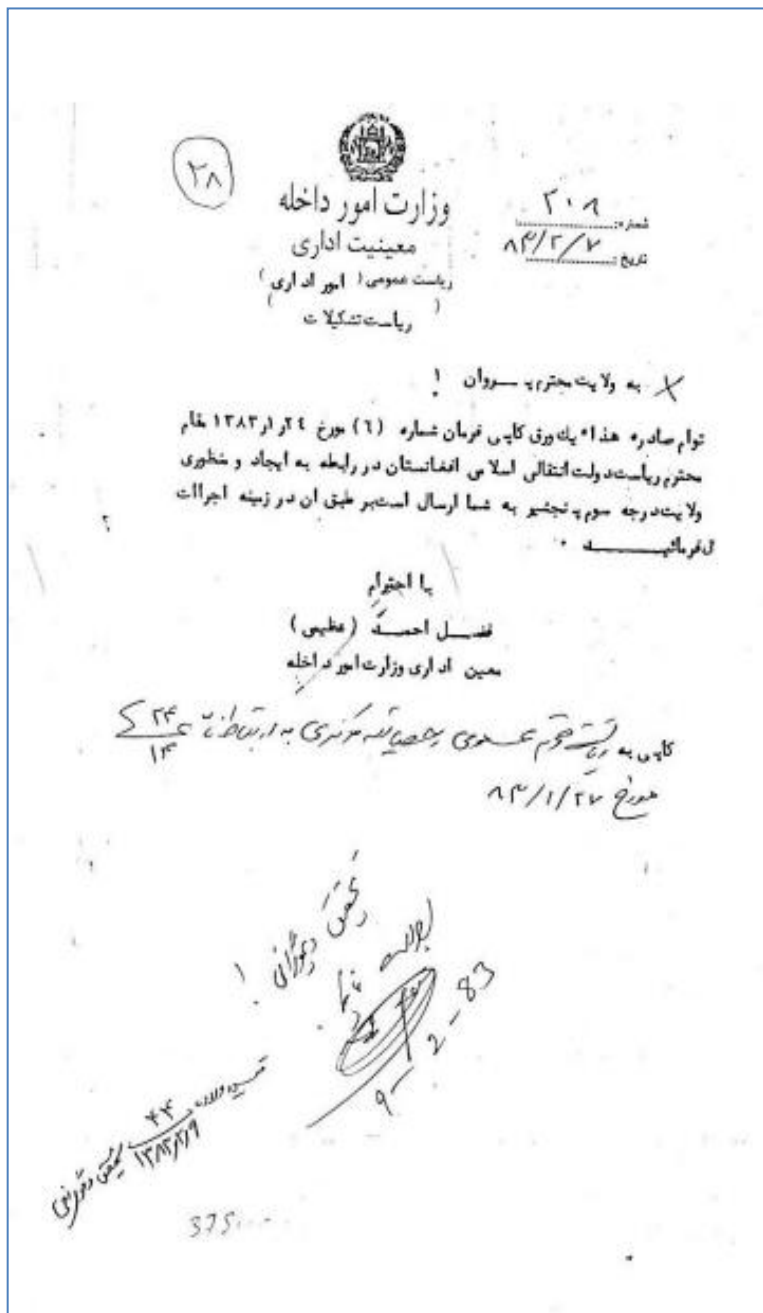 ۲۸
وزارت امور داخله
معینیت اداری
ریاست عمومی ( امور اداری )
( ریاست تشکیلات )
شماره: ۲۰۸
تاریخ: ۸۳/۲/۷
به ولایت محترم پــروان !
توام صادره هذا یك ورق کاپی فرمان شماره (٦) مورخ ٢٤ر١ر١٣٨٣ مقام
محترم ریاست دولت انتقالی اسلامی افغانستان در رابطه به ایجاد و منظوری
ولایت درجه سوم پنجشیر به شما ارسال است بر طبق ان در زمینه اجراات
فرمائیـــد .
با احترام
فضــل احمــد (عظیمی)
معین اداری وزارت امور داخله
کاپی به محترم عمومی مرکزی به ارتباط ۲۴/۱۴
مورخ ۸۳/۱/۲۷
!
9-2-83
۴۴
۱۳۸۳/۲/۹
375